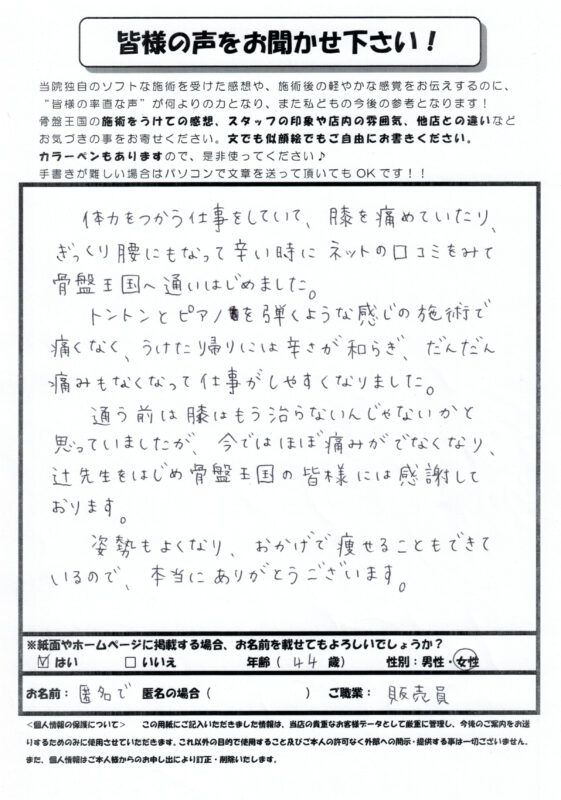 皆様の声をお聞かせ下さい！
当院独自のソフトな施術を受けた感想や、施術後の軽やかな感覚をお伝えするのに、
“皆様の率直な声”が何よりの力となり、また私どもの今後の参考となります！
骨盤王国の施術をうけての感想、スタッフの印象や店内の雰囲気、他店との違いなど
お気づきの事をお寄せください。文でも似顔絵でもご自由にお書きください。
カラーペンもありますので、是非使ってください♪
手書きが難しい場合はパソコンで文章を送って頂いてもOKです！！
体力をつかう仕事をしていて、膝を痛めていたり、
ぎっくり腰にもなって辛い時にネットの口コミをみて
骨盤王国へ通いはじめました。
トントンとピアノを弾くような感じの施術で
痛くなく、うけたり帰りには辛さが和らぎ、だんだん
痛みもなくなって仕事がしやすくなりました。
通う前は膝はもう治らないんじゃないかと
思っていましたが、今ではほぼ痛みがでなくなり、
辻先生をはじめ骨盤王国の皆様には感謝して
おります。
姿勢もよくなり、おかげで痩せることもできて
いるので、本当にありがとうございます。
※紙面やホームページに掲載する場合、お名前を載せてもよろしいでしょうか？
☑ はい □ いいえ 年齢（ 44 歳） 性別：男性・女性
お名前：匿名で 匿名の場合（ ） ご職業： 販売員
＜個人情報の保護について＞ この用紙にご記入いただきました情報は、当店の貴重なお客様データとして厳重に管理し、今後のご案内をお送
りするためのみに使用させていただきます。これ以外の目的で使用すること及びご本人の許可なく外部への開示・提供する事は一切ございません。
また、個人情報はご本人様からのお申し出により訂正・削除いたします。